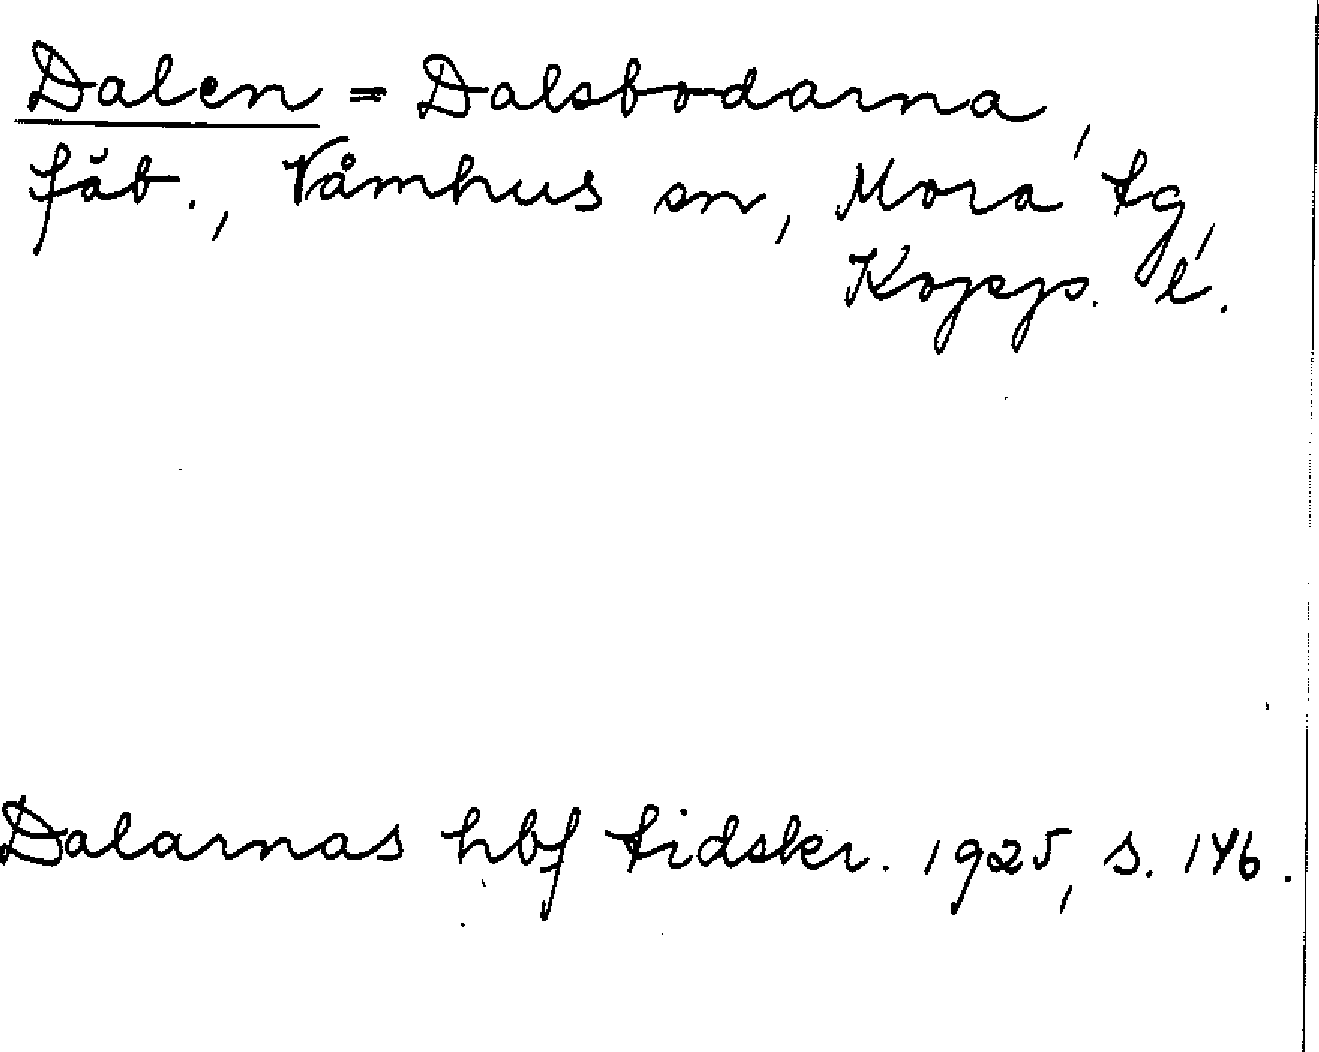 Dalen = Dalsbodarna,
fäb., Våmhus sn, Mora tg,
Kopp. l.
Dalarnas hbf tidskr. 1925, s. 146.